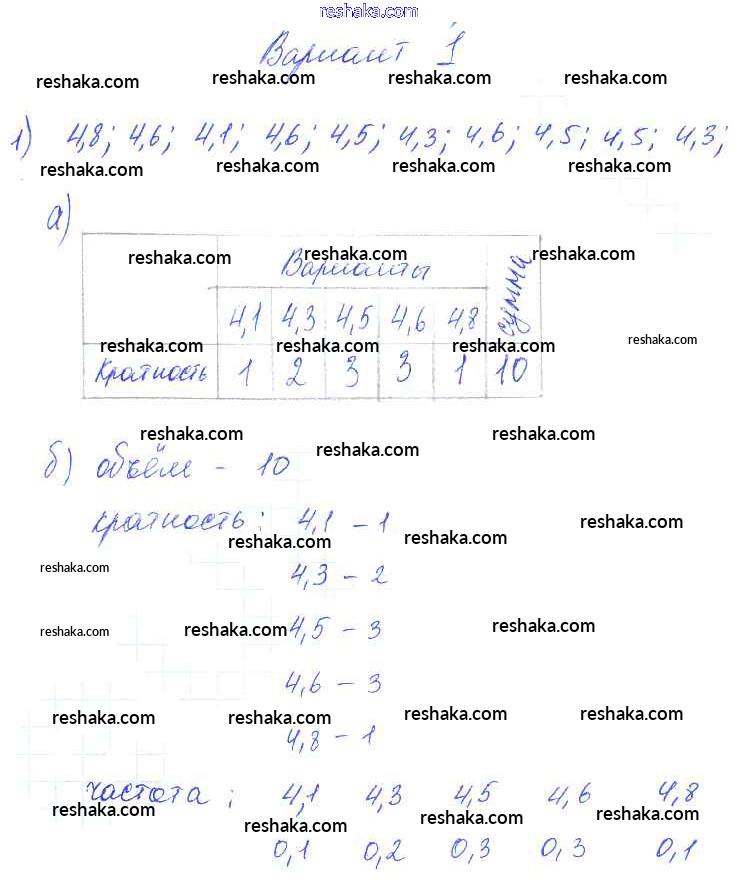 reshaka.com
Вариант 1
reshaka.com reshaka.com reshaka.com reshaka.com
1) 4,8; 4,6; 4,1; 4,6; 4,5; 4,3; 4,6; 4,5; 4,5; 4,3;
reshaka.com reshaka.com reshaka.com reshaka.com
а)
reshaka.com reshaka.com reshaka.com
Варианты сумма
4,1 4,3 4,5 4,6 4,8
reshaka.com reshaka.com reshaka.com reshaka.com
Кратность 1 2 3 3 1 10
reshaka.com reshaka.com reshaka.com
б) объём - 10
кратность: 4,1 - 1
reshaka.com reshaka.com reshaka.com
reshaka.com
4,3 - 2
reshaka.com reshaka.com reshaka.com
4,5 - 3
4,6 - 3
reshaka.com reshaka.com reshaka.com reshaka.com
4,8 - 1
частота: 4,1 4,3 4,5 4,6 4,8
reshaka.com reshaka.com reshaka.com reshaka.com
0,1 0,2 0,3 0,3 0,1